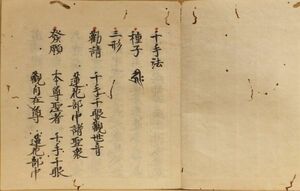 千手法
種子
三形
勧請 千手千眼観世音
蓮花部中諸聖衆
發願 本尊聖者 千手千眼
觀自在尊 蓮花部中